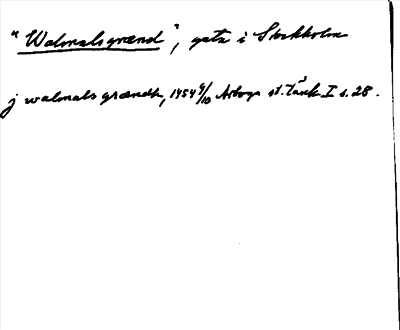 "Walmalsgrænd", gata i Stockholm
j walmals grændh, 1454 9/10 Arboga st. Tänk I s. 28.